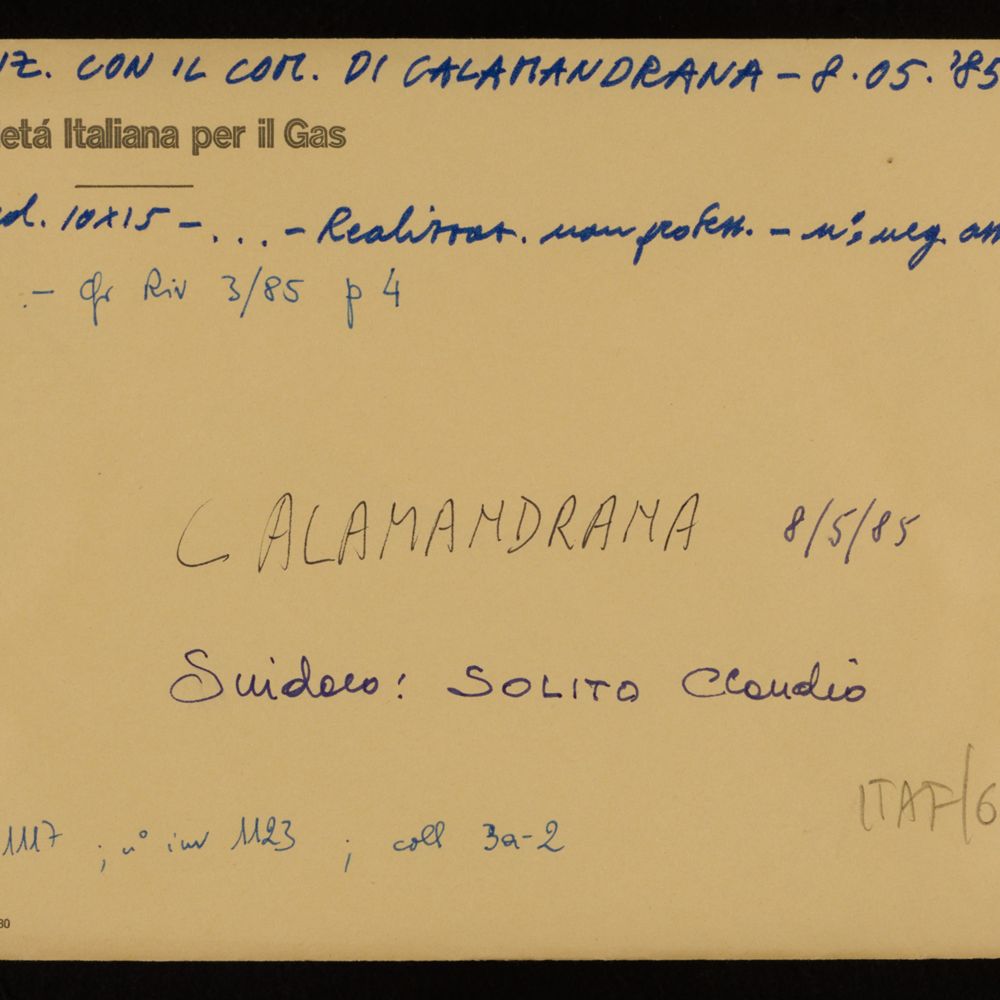 IZ. CON IL COM. DI CALAMANDRANA - 8.05.'85
età Italiana per il Gas
ed. 10x15 - ... - Realizzaz. non profess. - n°; neg. ass
.- cfr Riv 3/85 p 4
CALAMANDRANA 8/5/85
Sindaco: SOLITO Claudio
ITAF/6
1117 ; n° inv 1123 ; coll 3a-2
80